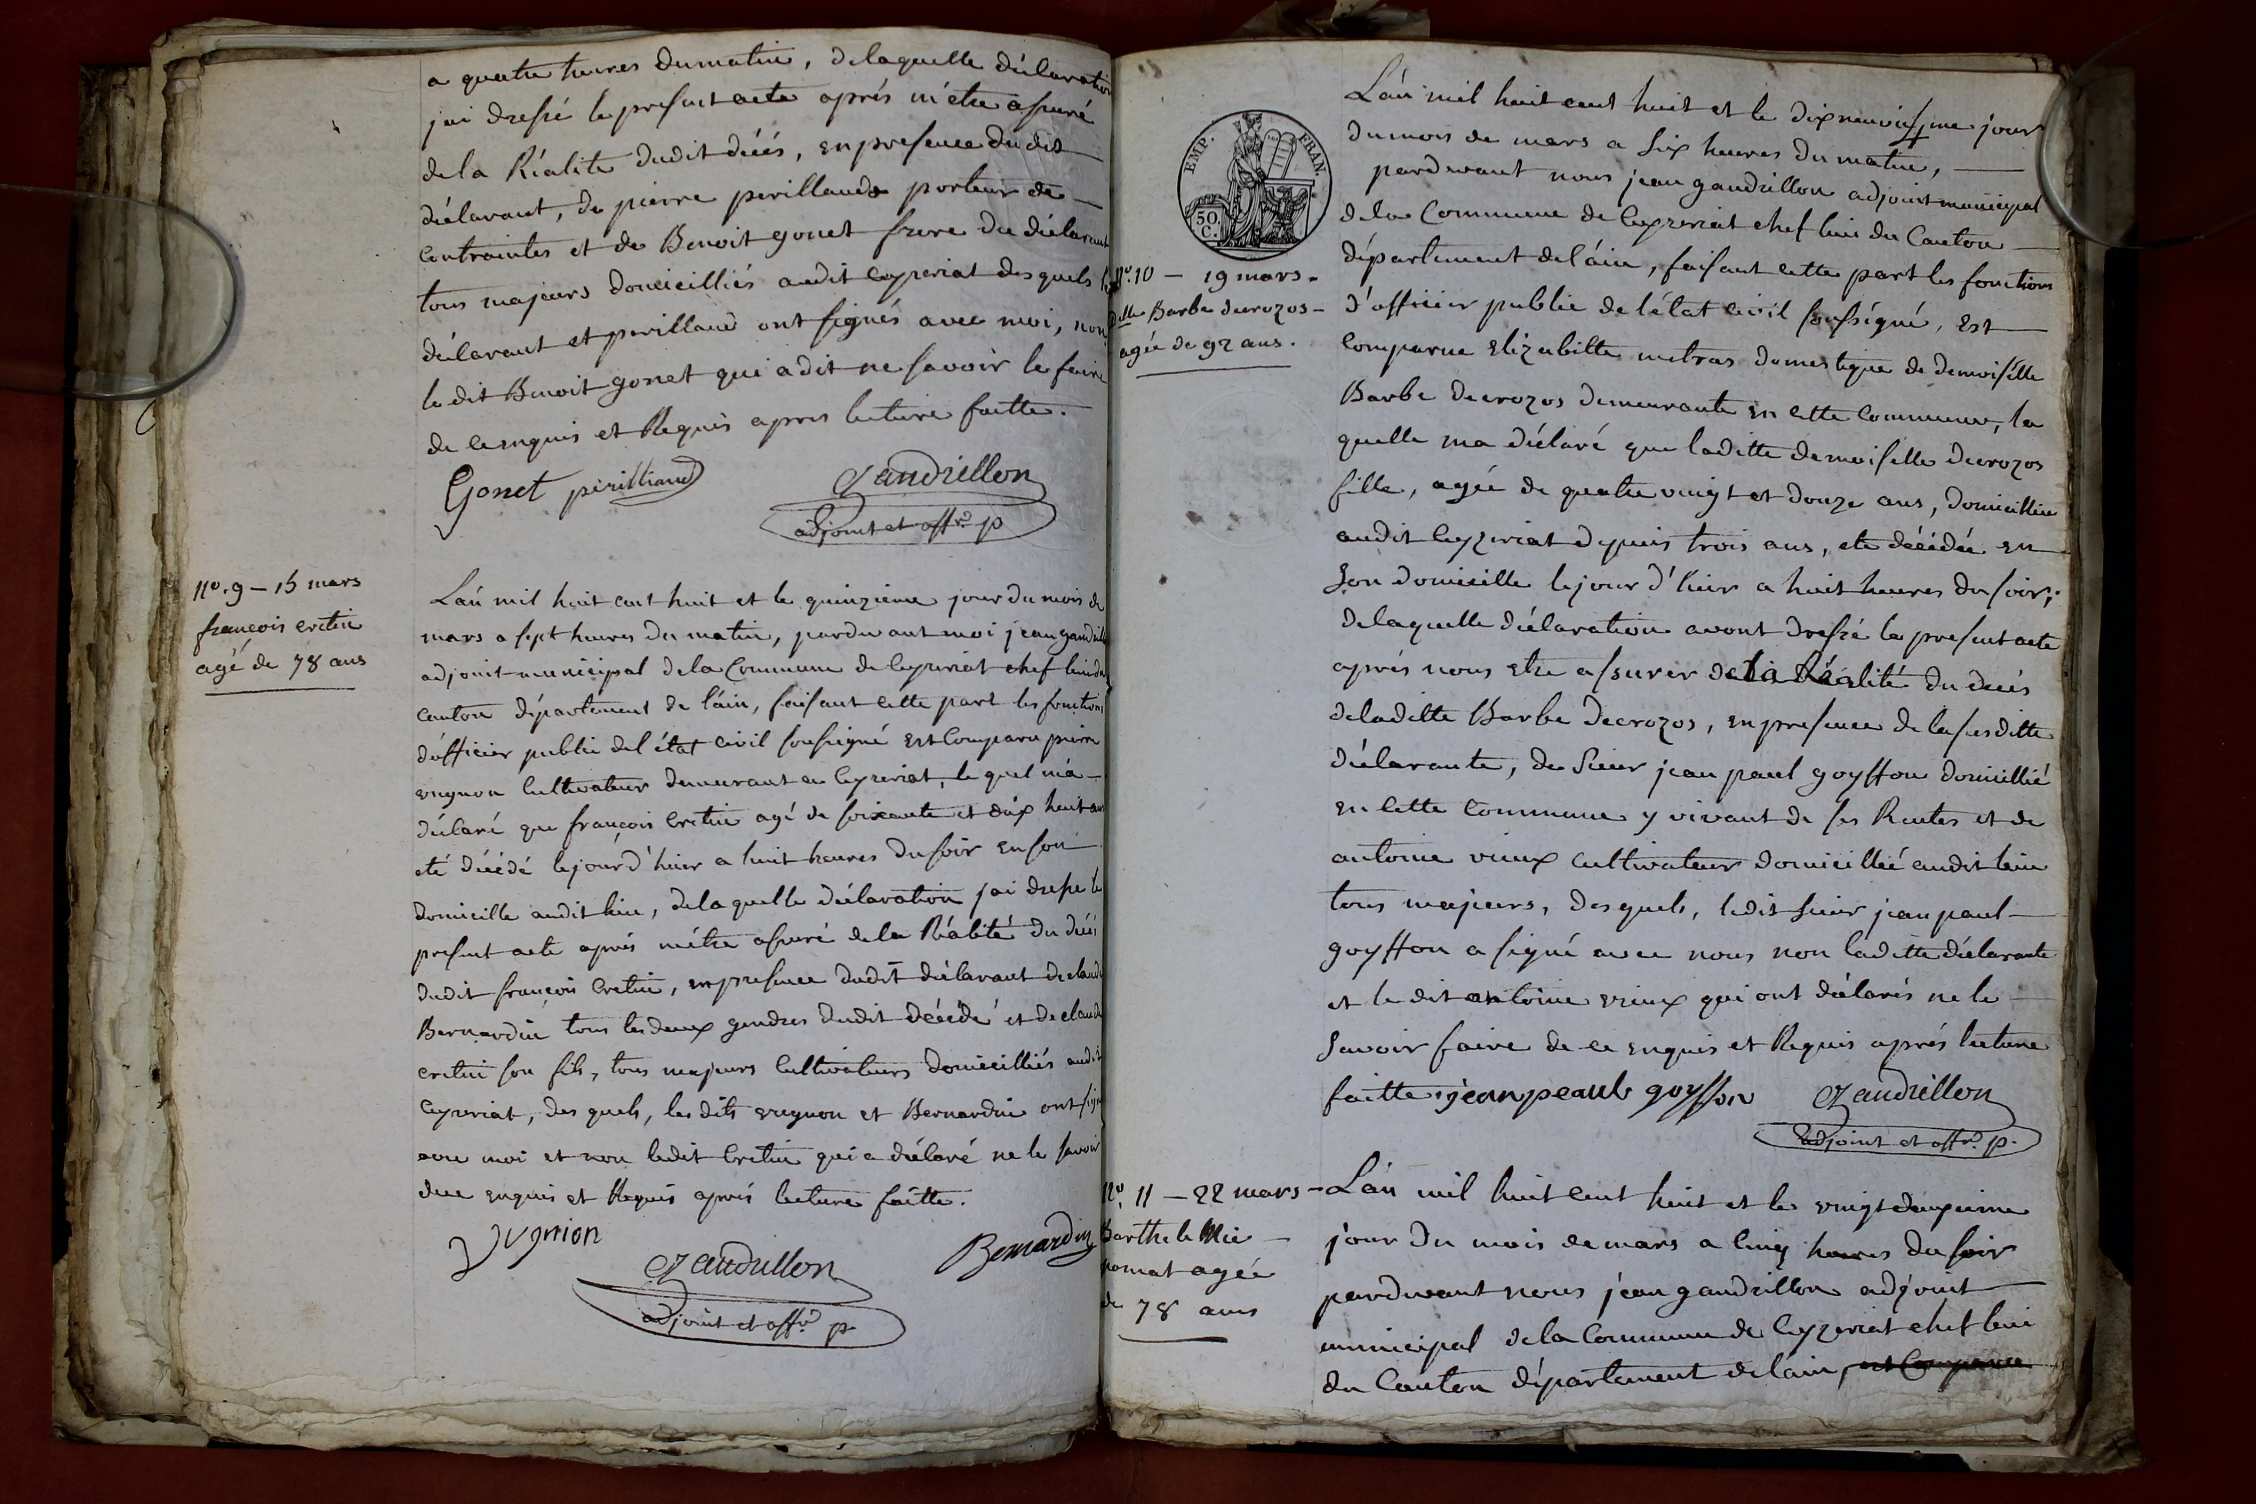 a quatre heures du matin, de laquelle déclaration
jai dressé le present acte aprés m'etre assuré
de la Réalité dudit décés, en presence dudit
déclarant, de pierre perillaud porteur de
contraintes et de Benoit gonet frere du déclarant
tous majeurs domicilliés audit ceyzeriat des quels le
déclarant et perillaud ont signés avec moi, non
le dit Benoit gonet qui a dit ne savoir le faire
de ce enquis et Requis apres lecture faitte.
Gonet perilliaud Gandrillon
adjoint et offr. p
n°. 9 – 15 mars
françois cretin
agé de 78 ans
L'an mil huit cent huit et le quinzieme jour du mois de
mars a sept heures du matin, pardevant moi jean gandrillon
adjoint municipal de la Commune de Ceyzeriat chef lieu du
canton département de l'ain, faisant cette part les fonctions
d'officier public de l'état civil soussigné est Comparu pierre
cultivateur demeurant en Ceyzeriat, le quel m'a
déclaré que françois cretin agé de soixante et dix huit ans
eté décédé le jour d'hier a huit heures du soir en son
domicille audit lieu, de laquelle déclaration jai dressé le
present acte aprés m'être assuré de la Réalité du décés
dudit françois Cretin, en presence dudit déclarant de claude
Bernardin tous les deux gendres dudit décédé et de claude
cretin son fils, tous majeurs Cultivateurs domicilliés audit
Ceyzeriat, des quels, les dits et Bernardin ont signé
avec moi et non ledit Cretin qui a déclaré ne le savoir
de ce enquis et Requis aprés lecture faitte.
Bernardin
Gandrillon
adjoint et offr. p.
EMP. FRAN.
50
C.
n°. 10 – 19 mars.
dlle Barbe decrozos
agée de 92 ans.
L'an mil huit cent huit et le dix neuviesme jour
du mois de mars a six heures du matin,
pardevant nous jean gandrillon adjoint municipal
de la Commune de Ceyzeriat chef lieu du Canton
département de l'ain, faisant cette part les fonctions
d'officier public de l'état civil soussigné, Est
Comparue Elizabitte metras domestique de demoiselle
Barbe Decrozos demeurante en cette Commune, la
quelle ma déclaré que laditte demoiselle decrozos
fille, agée de quatre vingt et douze ans, domicilliée
audit Ceyzeriat depuis trois ans, ete décédée en
son domicille le jour d'hier a huit heures du soir;
de laquelle déclaration avont dressé le present acte
aprés nous etre assurer de la Réalité du decés
de laditte Barbe Decrozos, en presence de la susditte
déclarante, du Sieur jean paul goyffon domicillié
en cette Commune y vivant de ses Rentes et de
antoine vieux cultivateur domicillié audit lieu
tous majeurs, desquels, ledit sieur jean paul
goyffon a signé avec nous non laditte déclarante
et le dit antoine vieux qui ont déclarés ne le
savoir faire de ce enquis et Requis aprés lecture
faitte. jean peaul goyffon Gandrillon
adjoint et offr. p.
n° 11 – 22 mars
Barthelemie
agée
de 78 ans
L'an mil huit cent huit et le vingt deuxieme
jour du mois de mars a cinq heures du soir
pardevant nous jean gandrillon adjoint
municipal de la Commune de Ceyzeriat chef lieu
du Canton département de l'ain, est Comparu